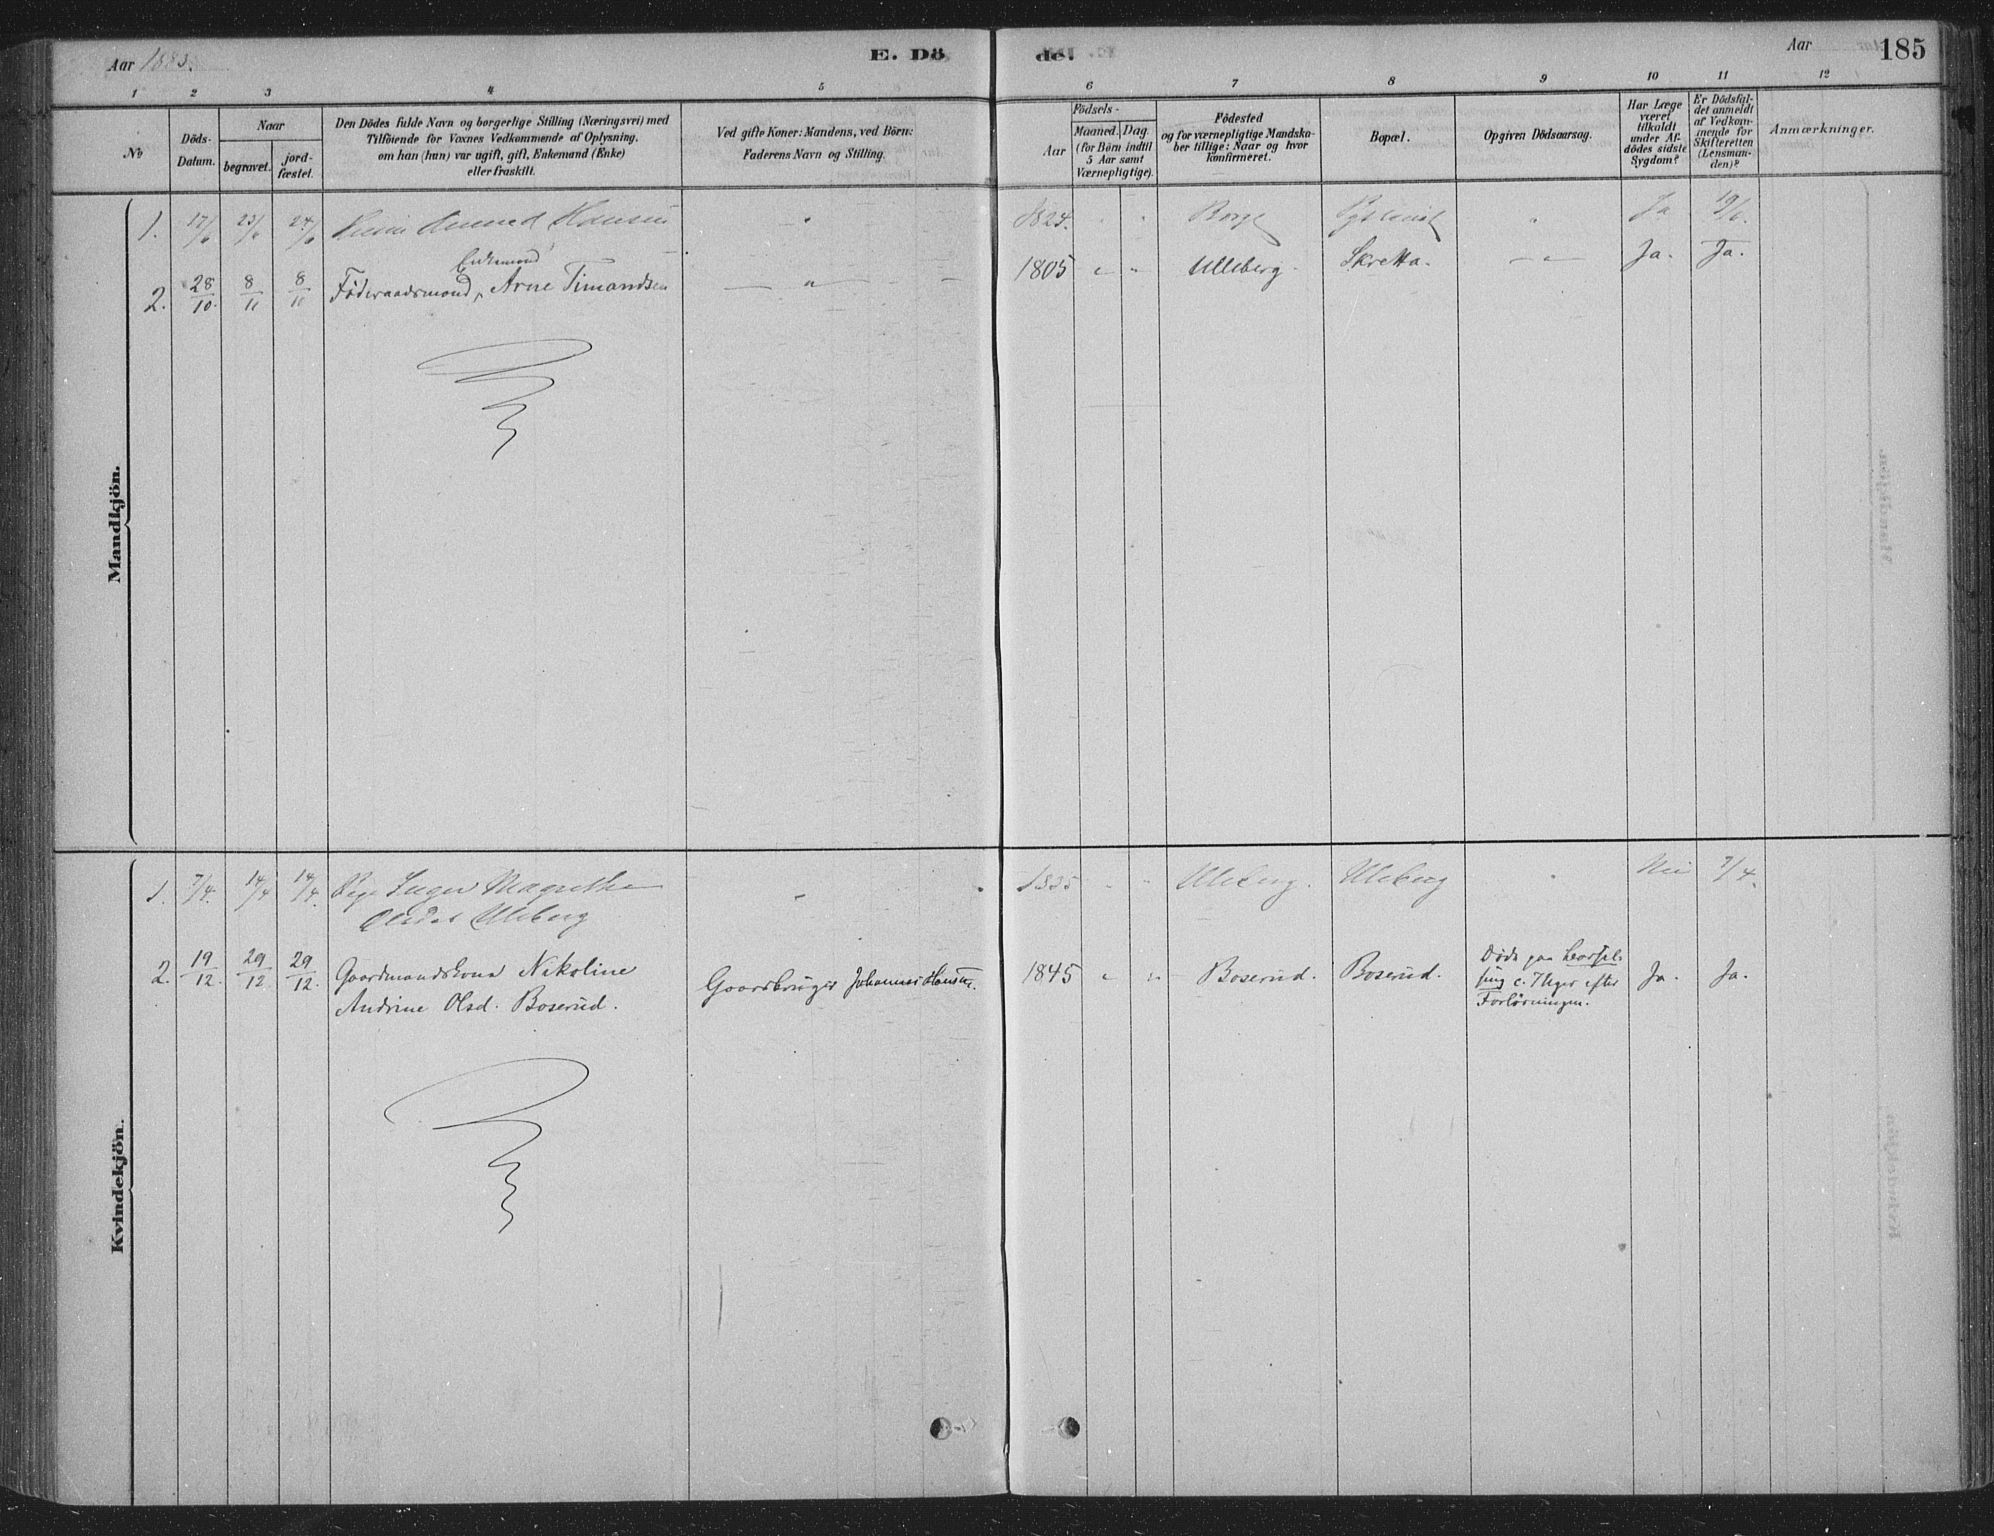 Aar 1883.
E. Döde.
Aar
185
1 2 3 4 5 6 7 8 9 10 11 12
No
Döds-Datum.
Naar
begravet.
jord-fæstet.
Den Dödes fulde Navn og borgerlige Stilling (Næringsvei) med
Tilföiende for Voxnes Vedkommende af Oplysning,
om han (hun) var ugift, gift, Enkemand (Enke)
eller fraskilt.
Ved gifte Koner: Mandens, ved Börn:
Faderens Navn og Stilling.
Födsels-
Aar
Maaned. Dag.
(for Börn indtil
5 Aar samt
Værnepligtige).
Födested
og for værnepligtige Mandska-
ber tillige: Naar og hvor
konfirmeret.
Bopæl.
Opgiven Dödsaarsag.
Har Læge
været
tilkaldt
under Af-
dödes sidste
Sygdom?
Er Dödsfal-
det anmeldt
af Vedkom-
mende for
Skifteretten
(Lensman-
den)?
Anmærkninger.
Mandkjön.
1. 17/6 23/6 24/6 Hansen " 1824. " " Borge " Ja 19/6.
Enkemand
2. 28/10. 8/11 8/11 Föderaadsmand, Arne Timandsen — " — 1805 " " Ulleberg. Skretta. — " — Ja. Ja.
Kvindekjön.
1. 7/4. 14/4 14/4. Pige Inger Magrethe " 1835 " " Uleberg. Uleberg " Nei 7/4.
Olsdat Uleberg
2. 19/12. 29/12 29/12. Gaardmandskona Nikoline
Andrine Olsd. Boserud.
Gaardbruger Johannes Hansen. 1845 " " Boserud. Boserud.
Døde paa Barsel-
seng c. 7 Uger efter
Forløsningen.
Ja. Ja.